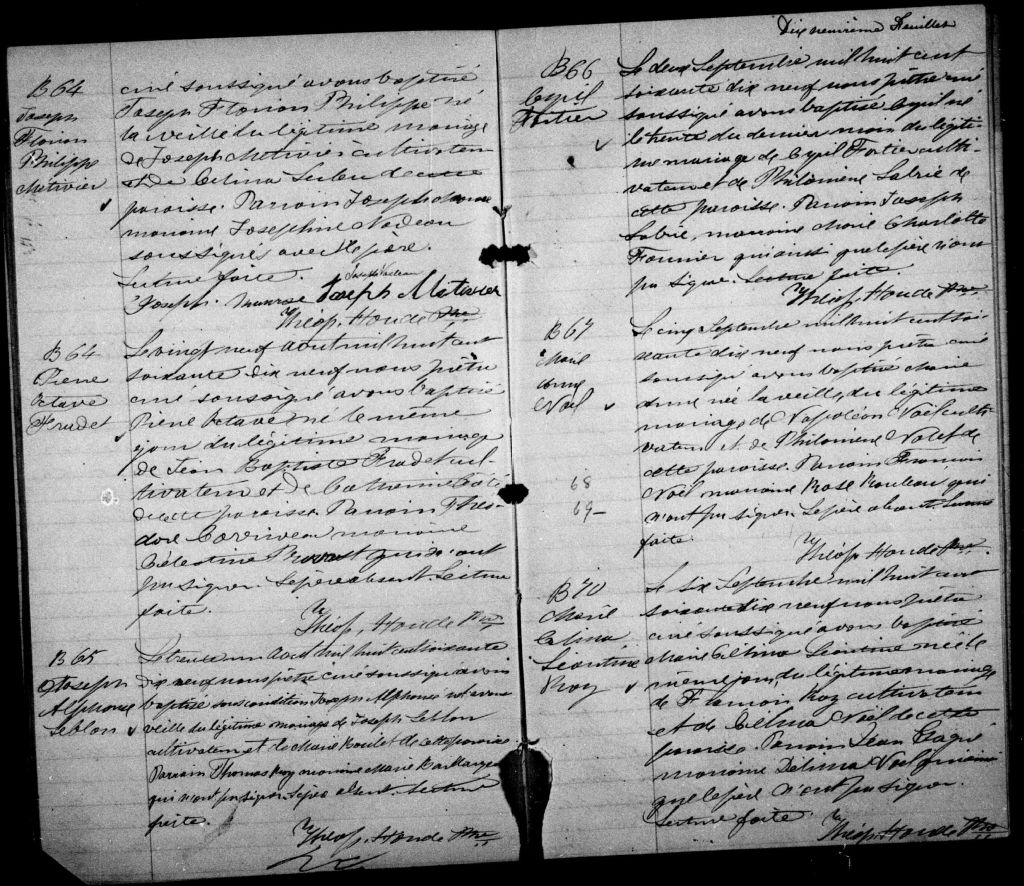 B 64
Joseph
Florian
Philippe
Metivier
curé soussigné avons baptisé
Joseph Florian Philippe né
la veille du légitime mariage
de Joseph Metivier cultivateur
et de Celina Leclerc de cette
paroisse. Parrain Joseph
marraine Josephine Nadeau
soussignés avec le père.
Lecture faite.
Joseph Metivier
Théop. Houde Ptre
B 64
Pierre
Octave
Fradet
Le vingt neuf Aout mil huit cent
soixante dix neuf nous prêtre
curé soussigné avons baptisé
Pierre Octave né le même
jour du légitime mariage
de Jean Baptiste Fradet cul-
tivateur et de Catherine
de cette paroisse Parrain Théo-
dore Corriveau marraine
Célestine qui n'ont
pu signer. Le père absent. Lecture
faite.
Théop. Houde Ptre
B 65
Joseph
Alphonse
Leblon
Le trente un Aout mil huit cent soixante
dix neuf nous prêtre curé soussigné avons
baptisé sous condition Joseph Alphonse né avant
veille du légitime mariage de Joseph Leblon
cultivateur et de Marie de cette paroisse
Parrain Thomas Roy marraine Marie
qui n'ont pu signer. Le père absent. Lecture
faite.
Théop. Houde Ptre
Dix neuvième Feuillet
B 66
Cyril
Fortier
Le deux Septembre mil huit cent
soixante dix neuf nous prêtre curé
soussigné avons baptisé Cyril né
le trente du dernier mois du légiti-
me mariage de Cyril Fortier culti-
vateur et de Philomene Labrie de
cette paroisse. Parrain Joseph
Labrie, marraine Marie Charlotte
Fournier qui ainsi que le père n'ont
pu signer. Lecture faite.
Théop. Houde Ptre
B 67
Marie
Anne
Noël
Le cinq Septembre mil huit cent soi-
xante dix neuf nous prêtre curé
soussigné avons baptisé Marie
Anne né la veille du légitime
mariage de Napoléon Noël culti-
vateur et de Philomene Nolet de
cette paroisse. Parrain François
Noël marraine Rose Rouleau qui
n'ont pu signer. Le père absent. Lecture
faite.
Théop. Houde Ptre
68
69
B 70
Marie
Celina
Léontine
Roy
Le six Septembre mil huit cent
soixante dix neuf nous prêtre
curé soussigné avons baptisé
Marie Celina Léontine née le
même jour du légitime mariage
de François Roy cultivateur
et de Celina Noël de cette
paroisse. Parrain Jean
marraine Delima Noël qui ainsi
que le père n'ont pu signer.
Lecture faite.
Théop. Houde Ptre